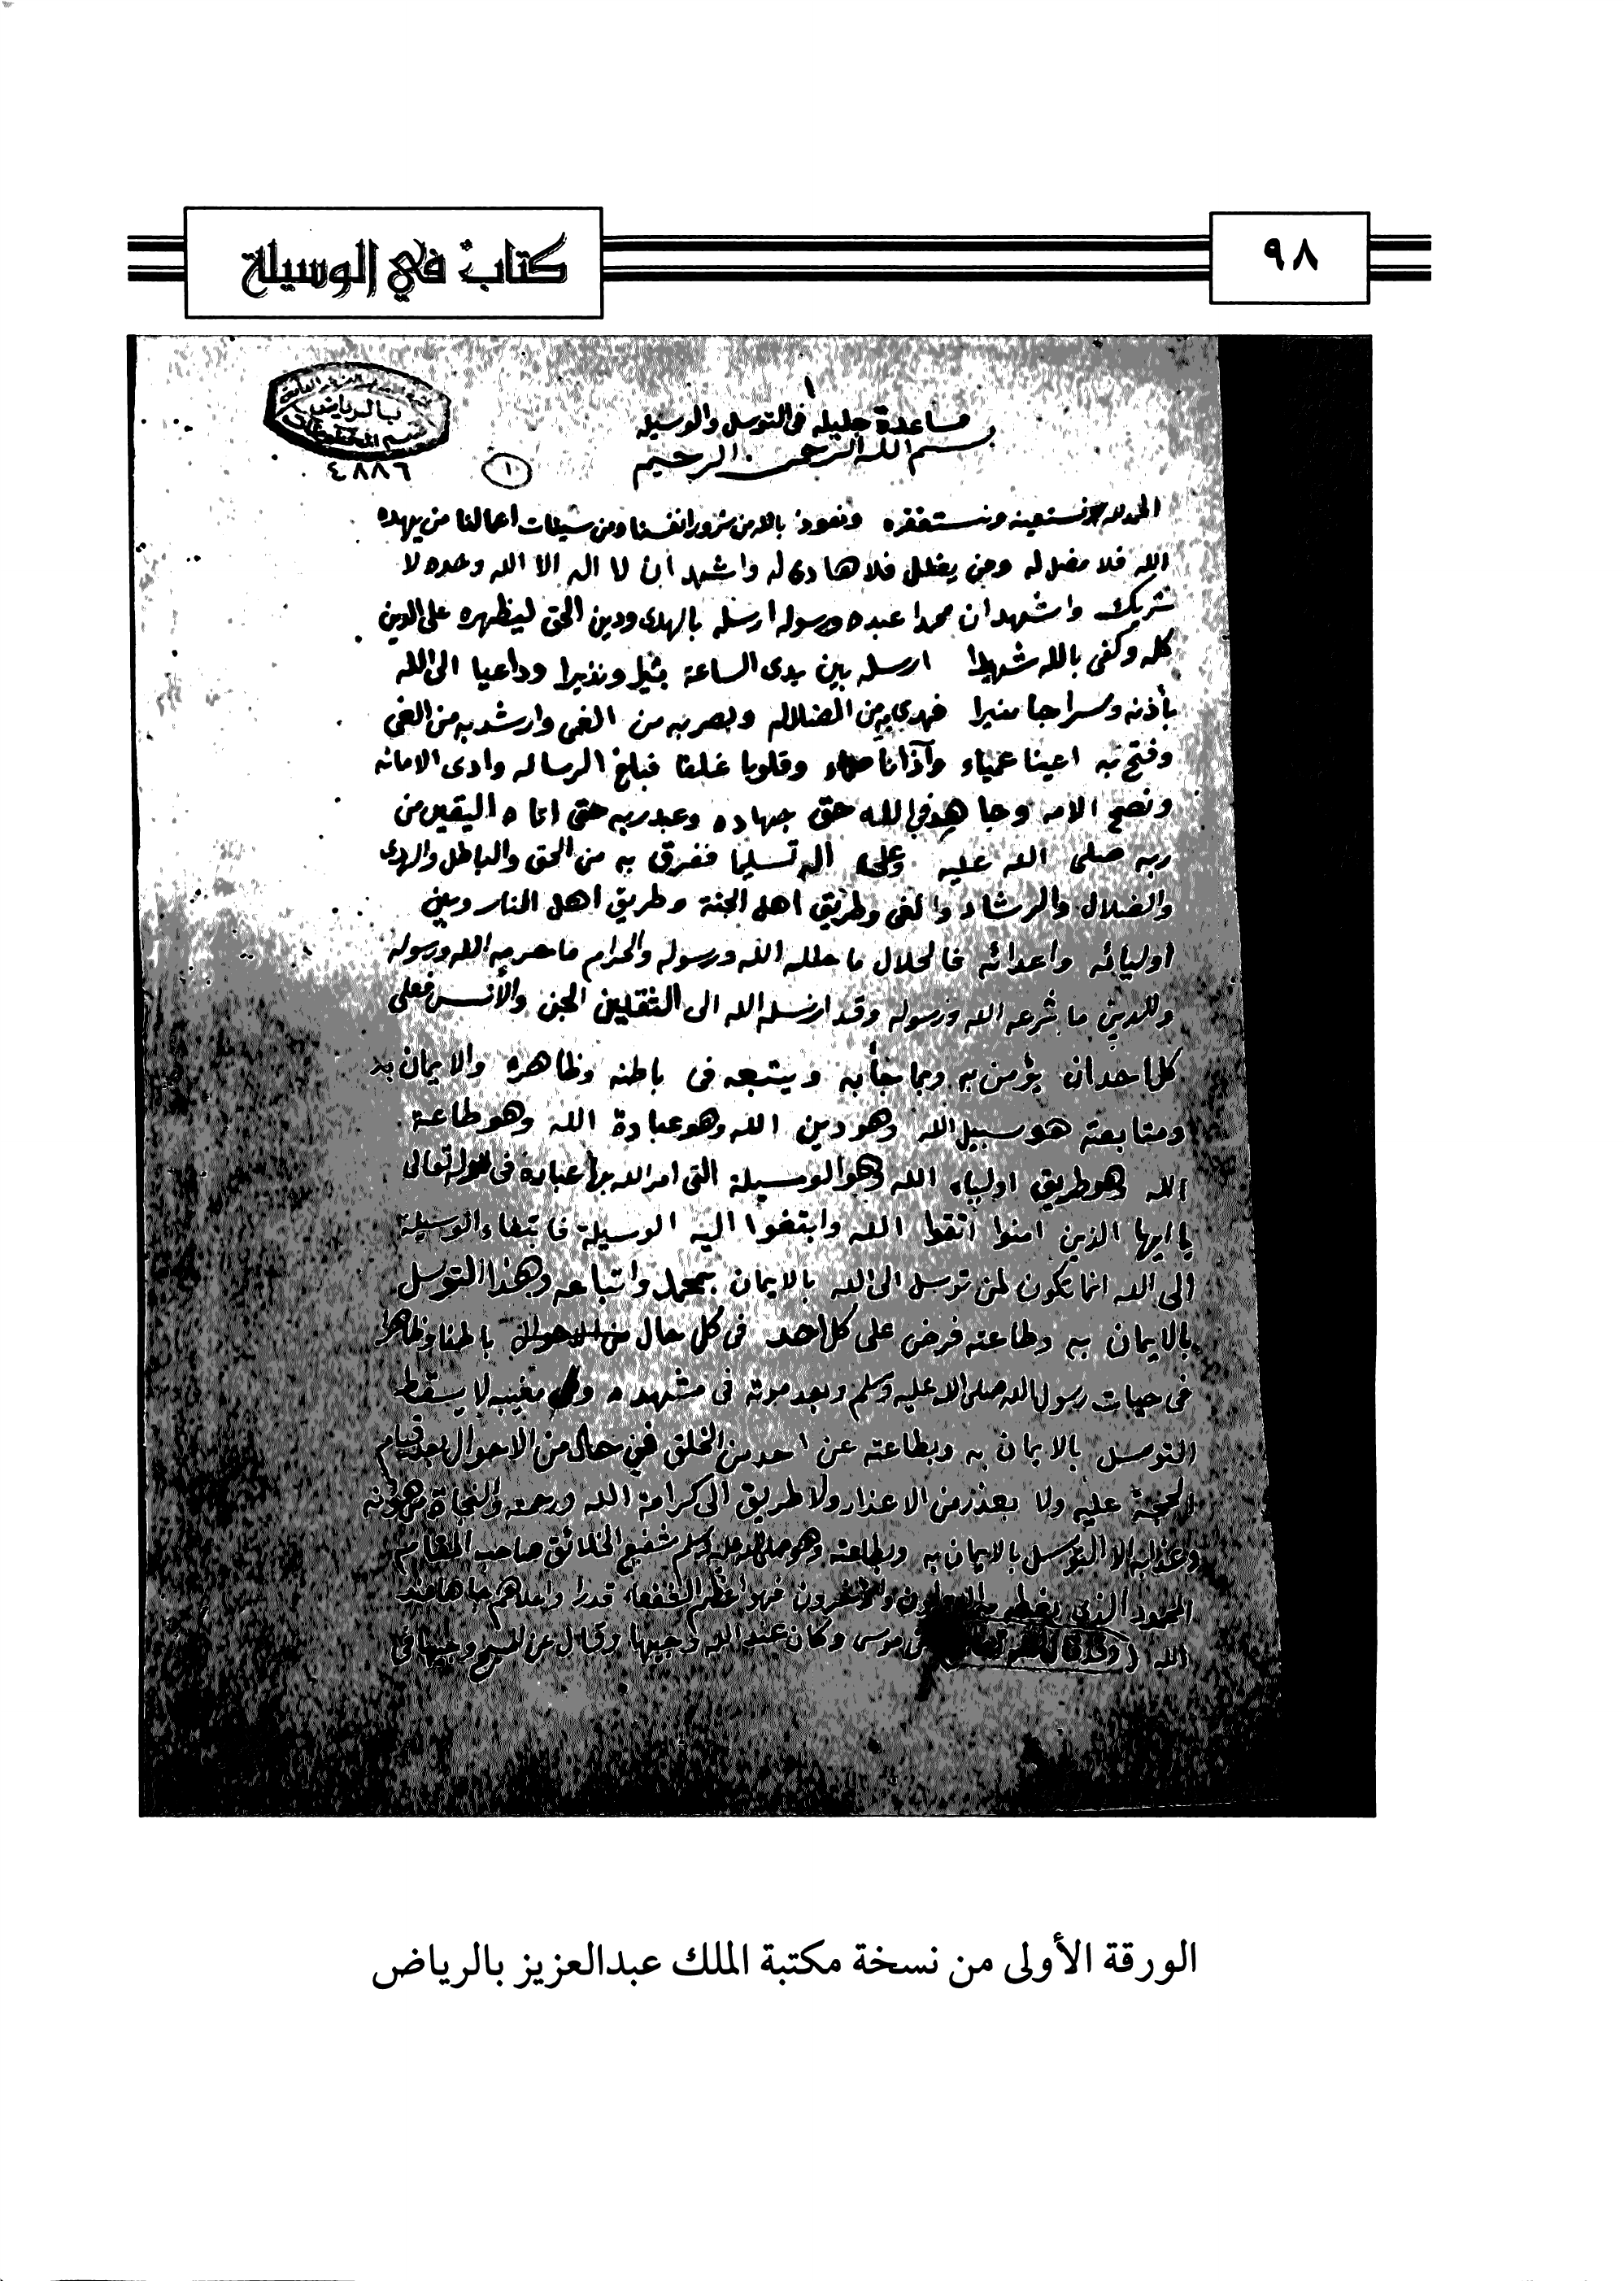 ٩٨
كتاب في الوسيلة
قاعدة جليلة في التوسل والوسيله
بسم الله الرحمن الرحيم
بالرياض
قسم المخطوطات
٤٨٨٦
١
الحمد لله نستعينه ونستغفره ونعوذ بالله من شرور انفسنا ومن سيئات اعمالنا من يهده
الله فلا مضل له ومن يضلل فلا هادى له واشهد ان لا اله الا الله وحده لا
شريك واشهد ان محمدا عبده ورسوله ارسله بالهدى ودين الحق ليظهره على الدين
كله وكفى بالله شهيدا ارسله بين يدى الساعة بشيرا ونذيرا وداعيا الى الله
بأذنه وسراجا منيرا فهدى به من الضلاله وبصر به من العمى وارشد به من الغى
وفتح به اعينا عمياء وآذانا صماء وقلوبا غلفا فبلغ الرساله وادى الامانه
ونصح الامه وجاهد فى الله حق جهاده وعبد ربه حتى اتاه اليقين من
ربه صلى الله عليه وعلى اله تسليما ففرق به من الحق والباطل والهدى
والضلال والرشاد والغى وطريق اهل الجنة وطريق اهل النار وبين
اوليائه واعدائه فالحلال ما حلله الله ورسوله والحرام ما حرمه الله ورسوله
والدين ما شرعه الله ورسوله وقد ارسله الله الى الثقلين الجن والأنس فعلى
كل احد ان يؤمن به وبما جأ به ويتبعه فى باطنه وظاهره والايمان به
ومتابعته هو سبيل الله وهو دين الله وهو عبادة الله وهو طاعة
الله وهو طريق اولياء الله وهو الوسيلة التى امر الله بها عباده فى قوله تعالى
يا ايها الذين امنوا اتقوا الله وابتغوا اليه الوسيلة فابتغاء الوسيلة
الى الله انما تكون لمن توسل الى الله بالايمان بمحمد واتباعه وهذا التوسل
بالايمان به وطاعته فرض على كل احد فى كل حال من الاحوال باطنا وظاهرا
فى حيات رسول الله صلى الله عليه وسلم وبعد موته فى مشهده و مغيبه لا يسقط
التوسل بالايمان به وبطاعته عن احد من الخلق فى حال من الاحوال بعد قيام
الحجة عليه ولا بعذر من الاعذار ولا طريق الى كرامة الله ورحمته والنجاة من هوانه
وعذابه الا التوسل بالايمان به وبطاعته وهو صلى الله عليه وسلم شفيع الخلائق صاحب المقام
المحمود الذى يغبطه به الاولون والاخرون فهو اعظم الشفعاء قدرا واعلاهم جاها عند
الله وقد قال الله تعالى عن موسى وكان عند الله وجيها وقال عن المسيح وجيها فى
الورقة الأولى من نسخة مكتبة الملك عبدالعزيز بالرياض